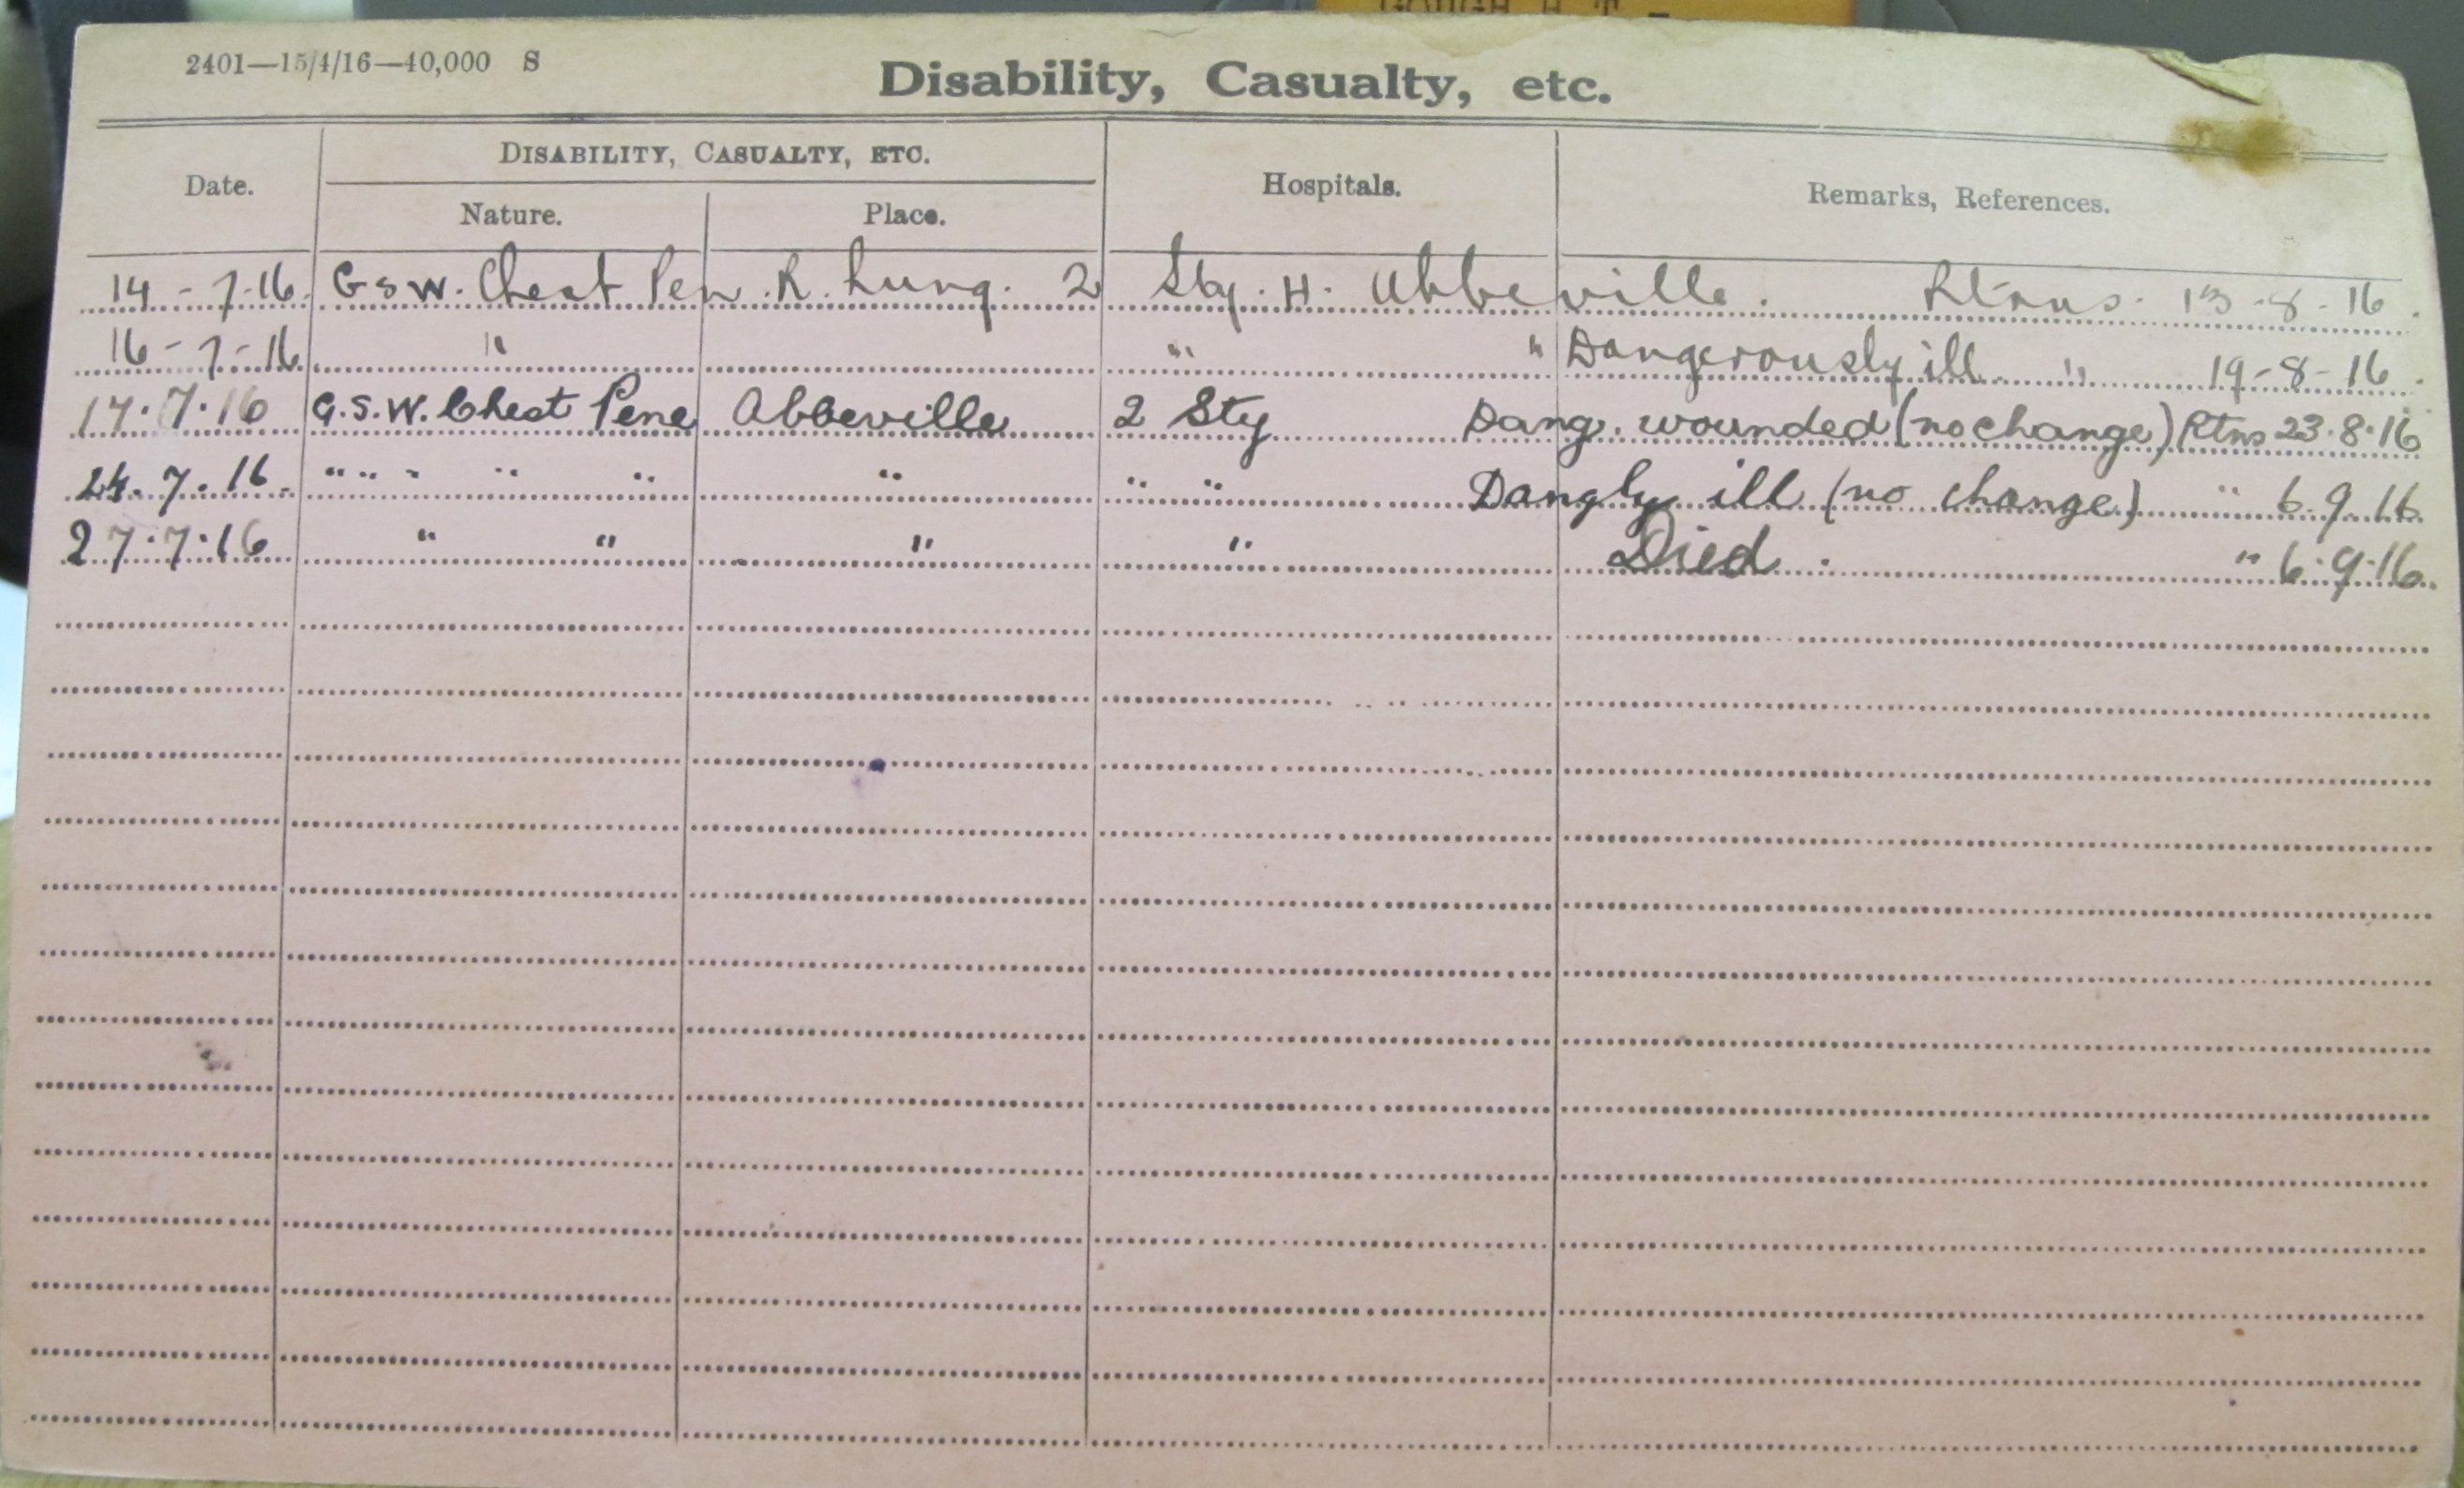 GOUGH H. T. -
2401—15/4/16—40,000 S
Disability, Casualty, etc.
Date. DISABILITY, CASUALTY, ETC. Hospitals. Remarks, References.
Nature. Place.
14-7-16. G S W. Chest Pen. R. Lung. 2 Sty. H. Abbeville. Rtrns. 13-8-16.
16-7-16. " " " Dangerously ill. " 19-8-16.
17.7.16 G.S.W. Chest Pene Abbeville 2 Sty Dang. wounded (no change) Rtns 23.8.16
24.7.16. " " " " " " " " Dangly ill (no change) " 6.9.16.
27.7.16 " " " " Died. " 6.9.16.